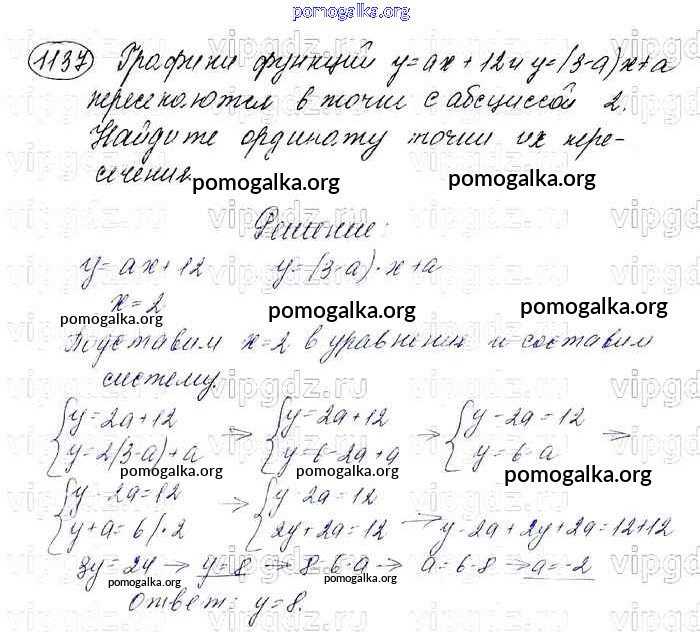 pomogalka.org
1137 Графики функций y=ax+12 и y=(3-a)x+a
пересекаются в точке с абсциссой 2.
Найдите ординату точки их пере-
сечения.
pomogalka.org pomogalka.org
Решение:
y=ax+12 y=(3-a)·x+a
x=2
pomogalka.org pomogalka.org pomogalka.org
Подставим x=2 в уравнения и составим
систему.
{y=2a+12 → {y=2a+12 → {y-2a=12 →
{y=2(3-a)+a {y=6-2a+a {y=6-a
pomogalka.org pomogalka.org pomogalka.org
{y-2a=12 → {y-2a=12
{y+a=6 |·2 {2y+2a=12 → y-2a+2y+2a=12+12
3y=24 → y=8 → 8=6-a → a=6-8 → a=-2
pomogalka.org pomogalka.org
Ответ: y=8.
vipgdz.ru